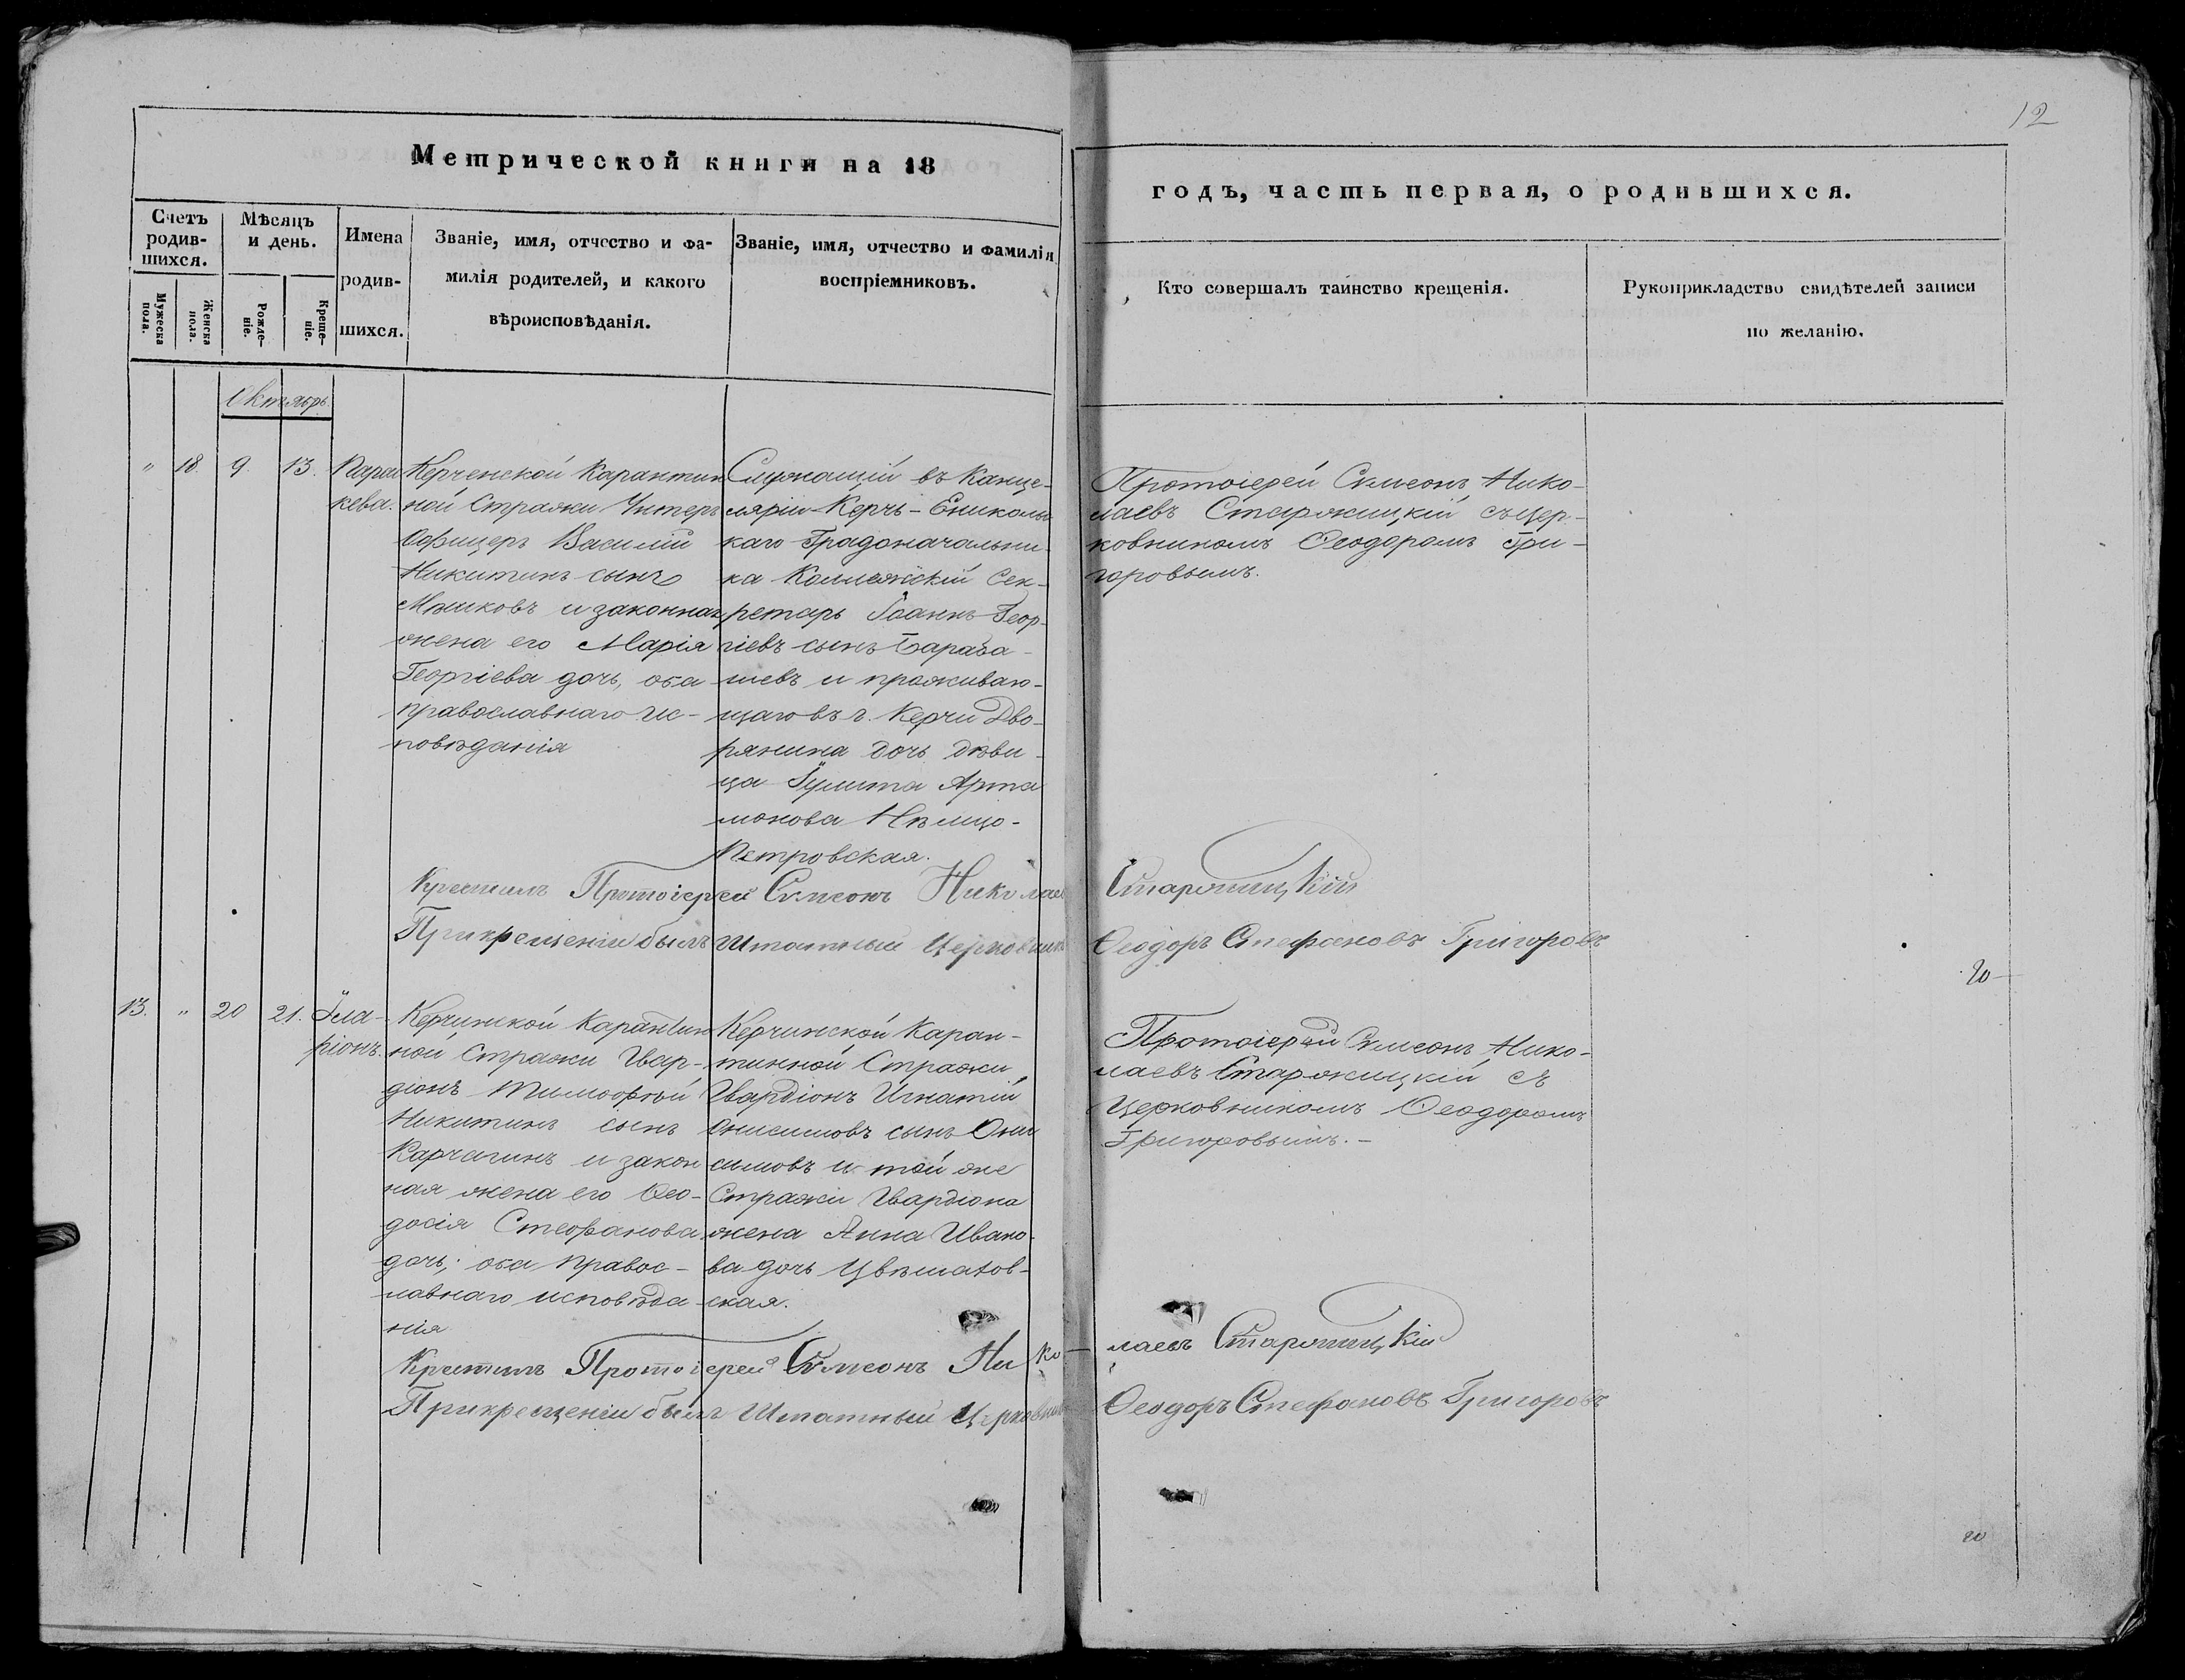 12
Метрической книги на 18
годъ, часть первая, о родившихся.
Счетъ родив-шихся.
Мѣсяцъ и день.
Имена родив-шихся.
Званіе, имя, отчество и фа-
милія родителей, и какого
вѣроисповѣданія.
Званіе, имя, отчество и фамилія
воспріемниковъ.
Мужеска пола.
Женска пола.
Рожде-ніе.
Креще-ніе.
Кто совершалъ таинство крещенія.
Рукоприкладство свидѣтелей записи
по желанію.
Октябрь
" 18. 9. 13.
Парас
кева.
Керченской Карантин
ной Стражи Унтеръ
Офицеръ Василій
Никитинъ сынъ
и законная
жена его Марія
Георгіева дочь, оба
православнаго ис-
повѣданія
Служащій въ Канце-
ляріи Керчь-Ениколь
каго Градоначальни-
ка Коллежскій Сек-
ретарь Іоаннъ Геор-
гіевъ сынъ
и проживаю-
щаго въ г. Керчи Дво-
рянина дочь дѣви-
ца Іулита Арта
монова Нѣмцо-
Петровская.
Протоіерей Сѵмеонъ Нико-
лаевъ Старожицкій съ цер-
ковникомъ Ѳеодоромъ Гри-
горовымъ.
Крестилъ Протоіерей Сѵмеонъ Николаев
Старожицкій
При крещеніи былъ Штатный Церковникъ
Ѳеодоръ Стефановъ Григоровъ
20
13. " 20 21.
Іла-
ріонъ.
Керчинской Карантин
ной Стражи Гвар-
діонъ Тимоѳей
Никитинъ сынъ
Карчагинъ и закон
ная жена его Ѳео-
досія Стефанова
дочь; оба правос-
лавнаго исповѣда-
нія
Керчинской Каран-
тинной Стражи
Гвардіонъ Игнатій
Онисимовъ сынъ Они
симовъ и той же
Стражи Гвардіона
жена Анна Ивано-
ва дочь
ская.
Протоіерей Сѵмеонъ Нико-
лаевъ Старожицкій съ
Церковникомъ Ѳеодоромъ
Григоровымъ.-
Крестилъ Протоіерей Сѵмеонъ Нико-
лаевъ Старожицкій
При крещеніи былъ Штатный Церковникъ
Ѳеодоръ Стефановъ Григоровъ
20